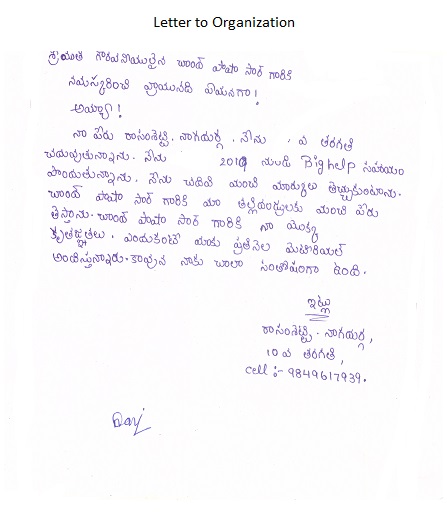 Letter to Organization
శ్రీయుత గౌరవనీయులైన చాంద్ పాషా సార్ గారికి
నమస్కరించి వ్రాయునది ఏమనగా!
అయ్యా!
నా పేరు రాసంశెట్టి. నాగయర్ల. నేను వ తరగతి
చదువుతున్నాను. నేను 2019 నుండి Bighelp సహాయం
పొందుతున్నాను. నేను చదివి మంచి మార్కులు తెచ్చుకుంటాను.
చాంద్ పాషా సార్ గారికి మా తల్లిదండ్రులకు మంచి పేరు
తెస్తాను. చాంద్ పాషా సార్ గారికి నా యొక్క
కృతజ్ఞతలు. ఎందుకంటే మాకు ప్రతినెల మెటీరియల్
అందిస్తున్నారు. కావున నాకు చాలా సంతోషంగా ఉంది.
ఇట్లు
రాసంశెట్టి. నాగయర్ల,
10 వ తరగతి,
cell :- 9849617939.